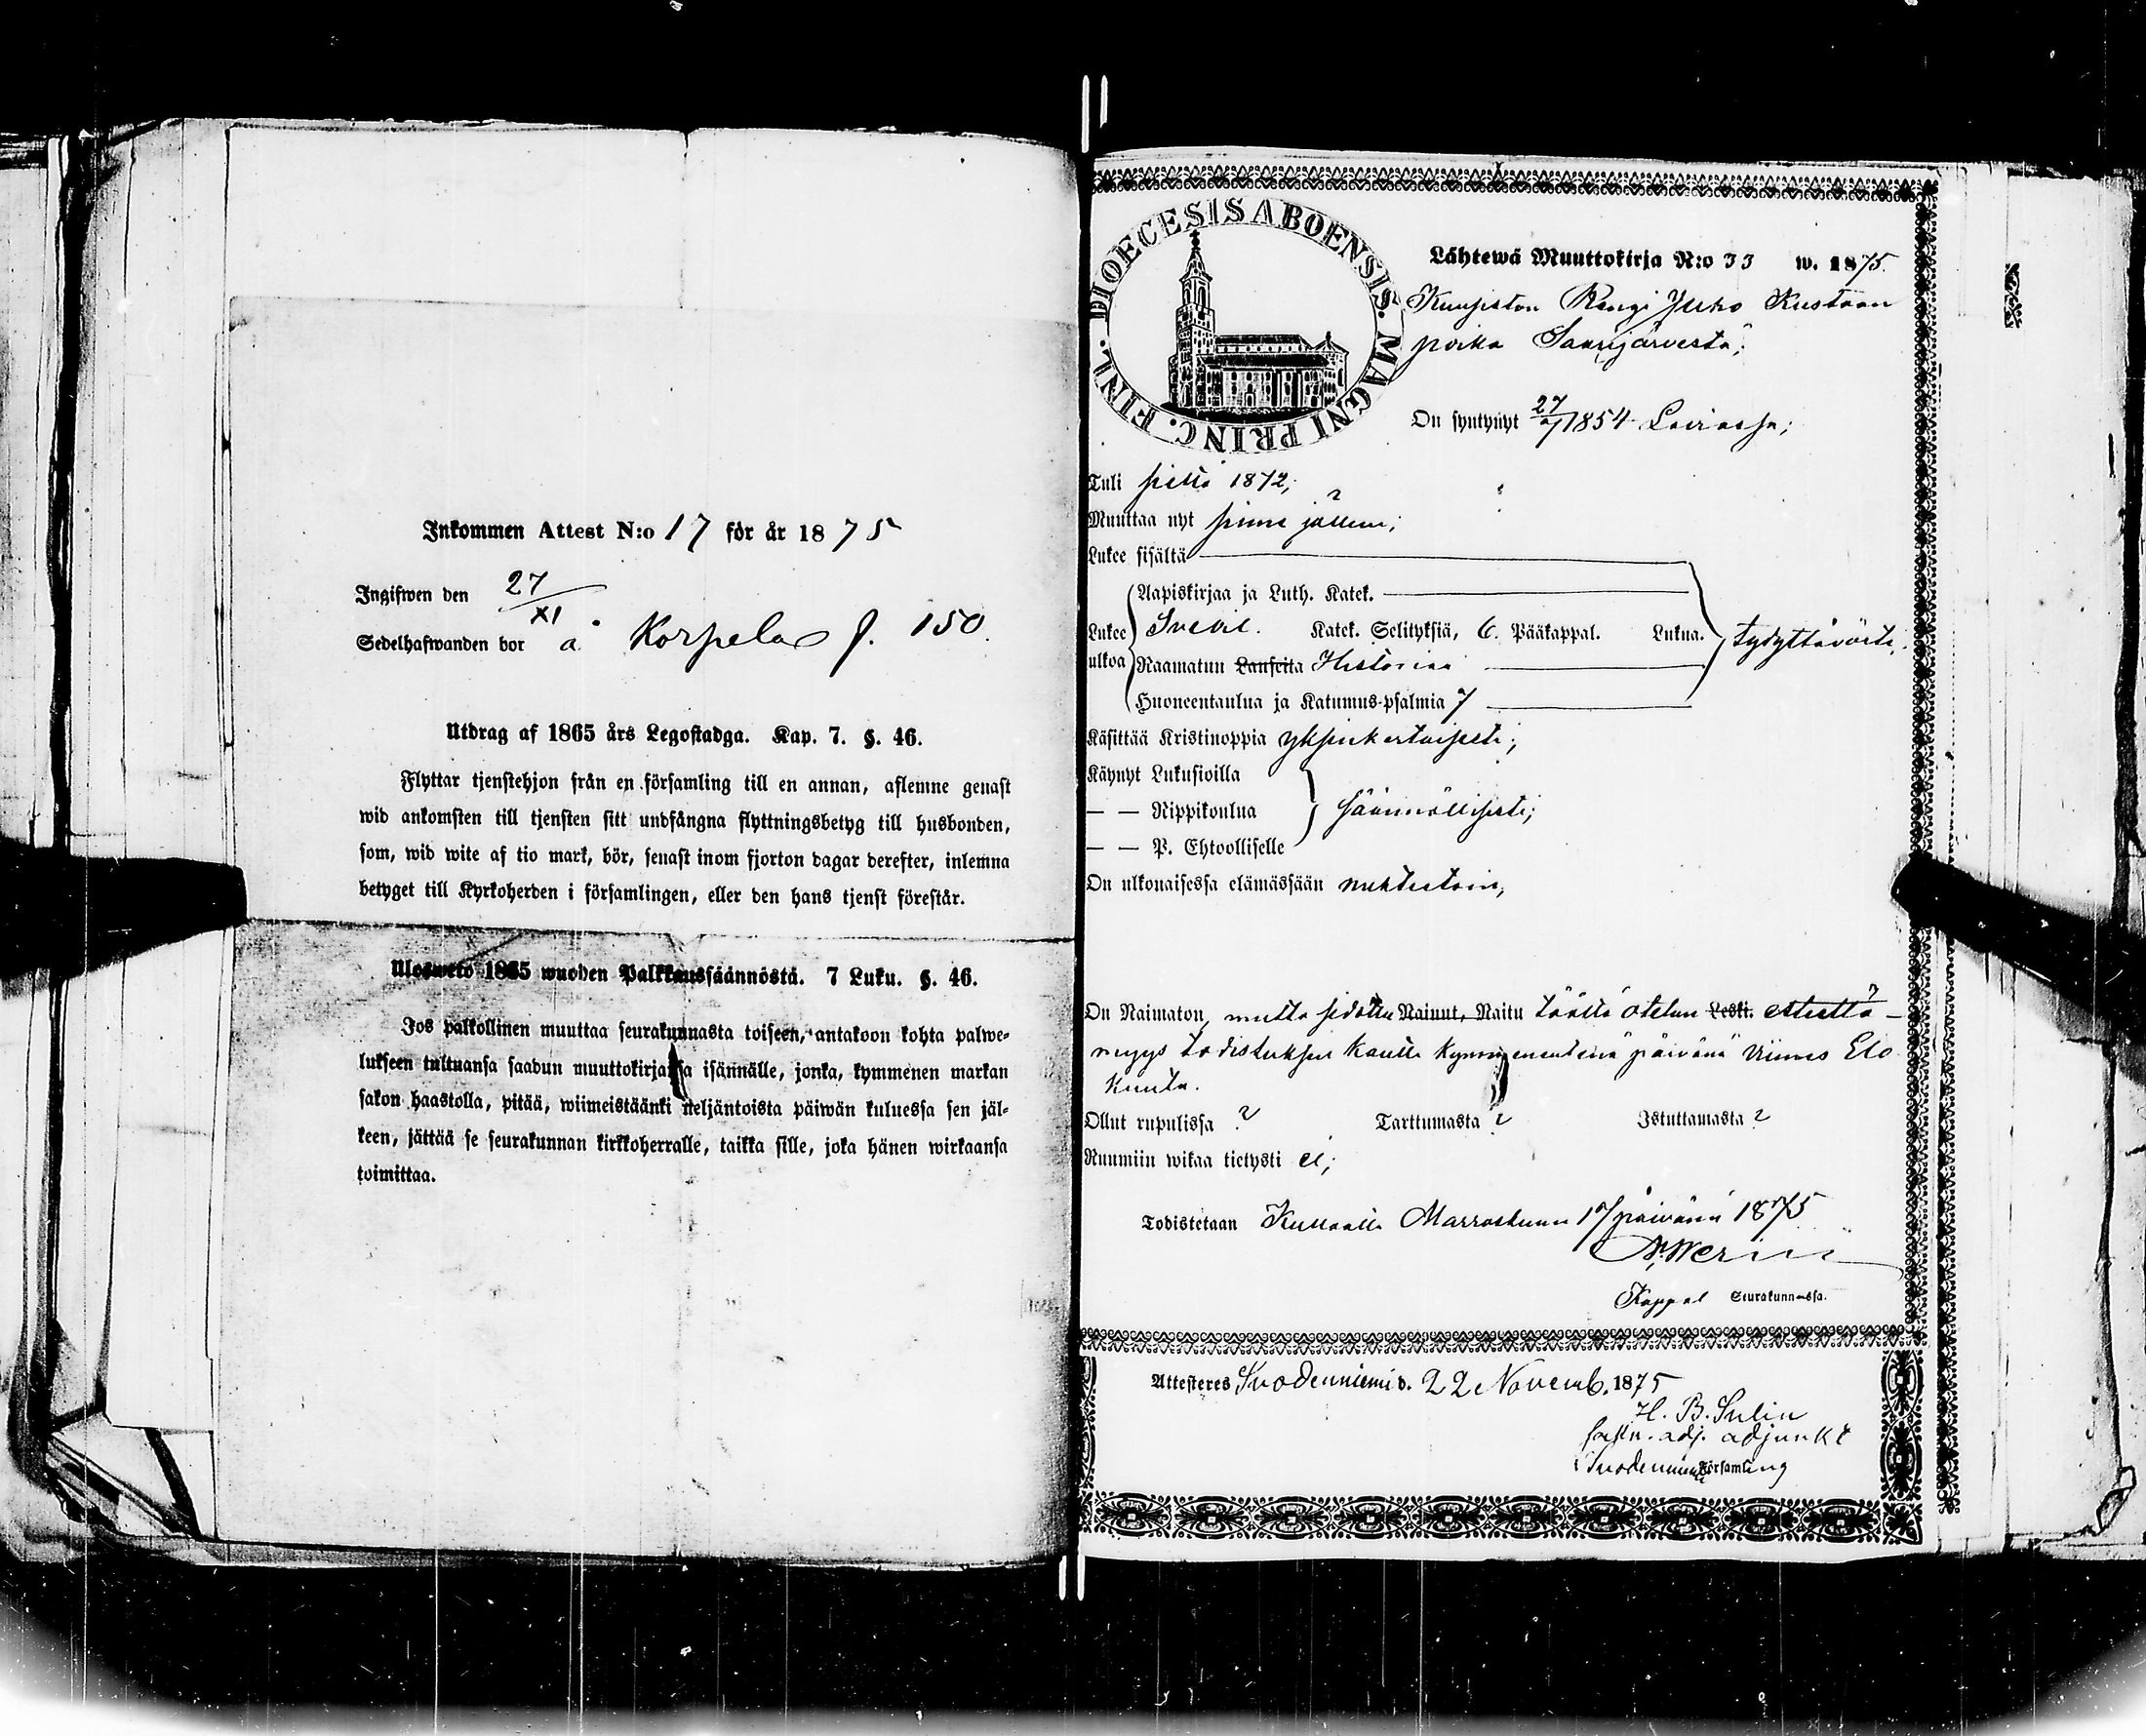 Inkommen Attest N:o 17 för år 1875
Ingifwen den 27/XI
Sedelhafwanden bor å Korpela f. 150.
Utdrag af 1865 års Legostadga. Kap. 7. §. 46.
Flyttar tjenstehjon från en församling till en annan, aflemne genast
wid ankomsten till tjensten sitt undfångna flyttningsbetyg till husbonden,
som, wid wite af tio mark, bör, senast inom fjorton dagar derefter, inlemna
betyget till Kyrkoherden i församlingen, eller den hans tjenst förestår.
Ulosweto 1865 wuoden Palkkaussäännöstä. 7 Luku. §. 46.
Jos palkollinen muuttaa seurakunnasta toiseen, antakoon kohta palwe-
lukseen tultuansa saadun muuttokirjansa isännälle, jonka, kymmenen markan
sakon haastolla, pitää, wiimeistäänki neljäntoista päiwän kuluessa sen jäl-
keen, jättää se seurakunnan kirkkoherralle, taikka sille, joka hänen wirkaansa
toimittaa.
DIOECESIS ABOENSIS. MAGNI PRINC. FINL.
Lähtewä Muuttokirja N:o 33 w. 1875.
Rengi Juho Kustaan
poika Saarijärvestä;
On syntynyt 27/7 1854 Laviassa;
Tuli sieltä 1872;
Muuttaa nyt sinne jälleen;
Lukee sisältä
Aapiskirjaa ja Luth. Katek.
Lukee ulkoa Svebil. Katek. Selityksiä, 6. Pääkappal. Lukua. tydyttävästi.
Raamatun Lauseita Historiaa
Huoneentaulua ja Katumus-psalmia 7
Käsittää Kristinoppia yksinkertaisesti;
Käynyt Lukusioilla
— — Rippikoulua säännöllisesti;
— — P. Ehtoolliselle
On ulkonaisessa elämässään nuhteetoin;
On Naimaton, mutta sidottu Nainut, Naitu täältä otetun Leski. esteettö-
myys todistuksen kautta kymmenentenä päivänä viime Elo
kuuta.
Ollut rupulissa ? Tarttumasta ? Istuttamasta ?
Ruumiin wikaa tietysti ei;
Todistetaan Kullaalla Marraskuun 17 päivänä 1875
Kappal Seurakunnassa.
Attesteres Suodenniemi d. 22 Novemb. 1875
H. B. Sulin
adj. adjunkt
Suodenniemi Församling